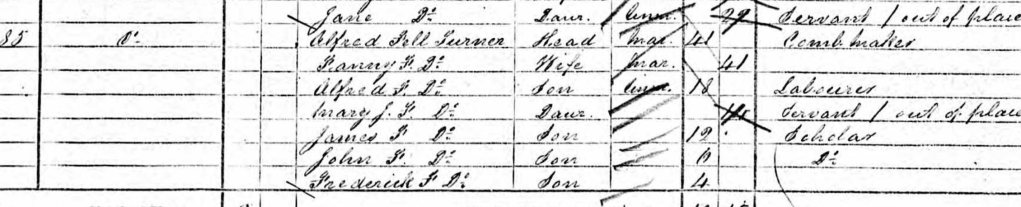 Jane Do Daur. Unm. 29 Servant / out of place
85 Do Alfred Pell Turner Head Mar. 41 Comb maker
Fanny P. Do Wife Mar. 41
Alfred P. Do Son Unm. 18 Labourer
Mary J. P. Do Daur. Servant / out of place
James P. Do Son 12 Scholar
John P. Do Son Do
Frederick P. Do Son 4